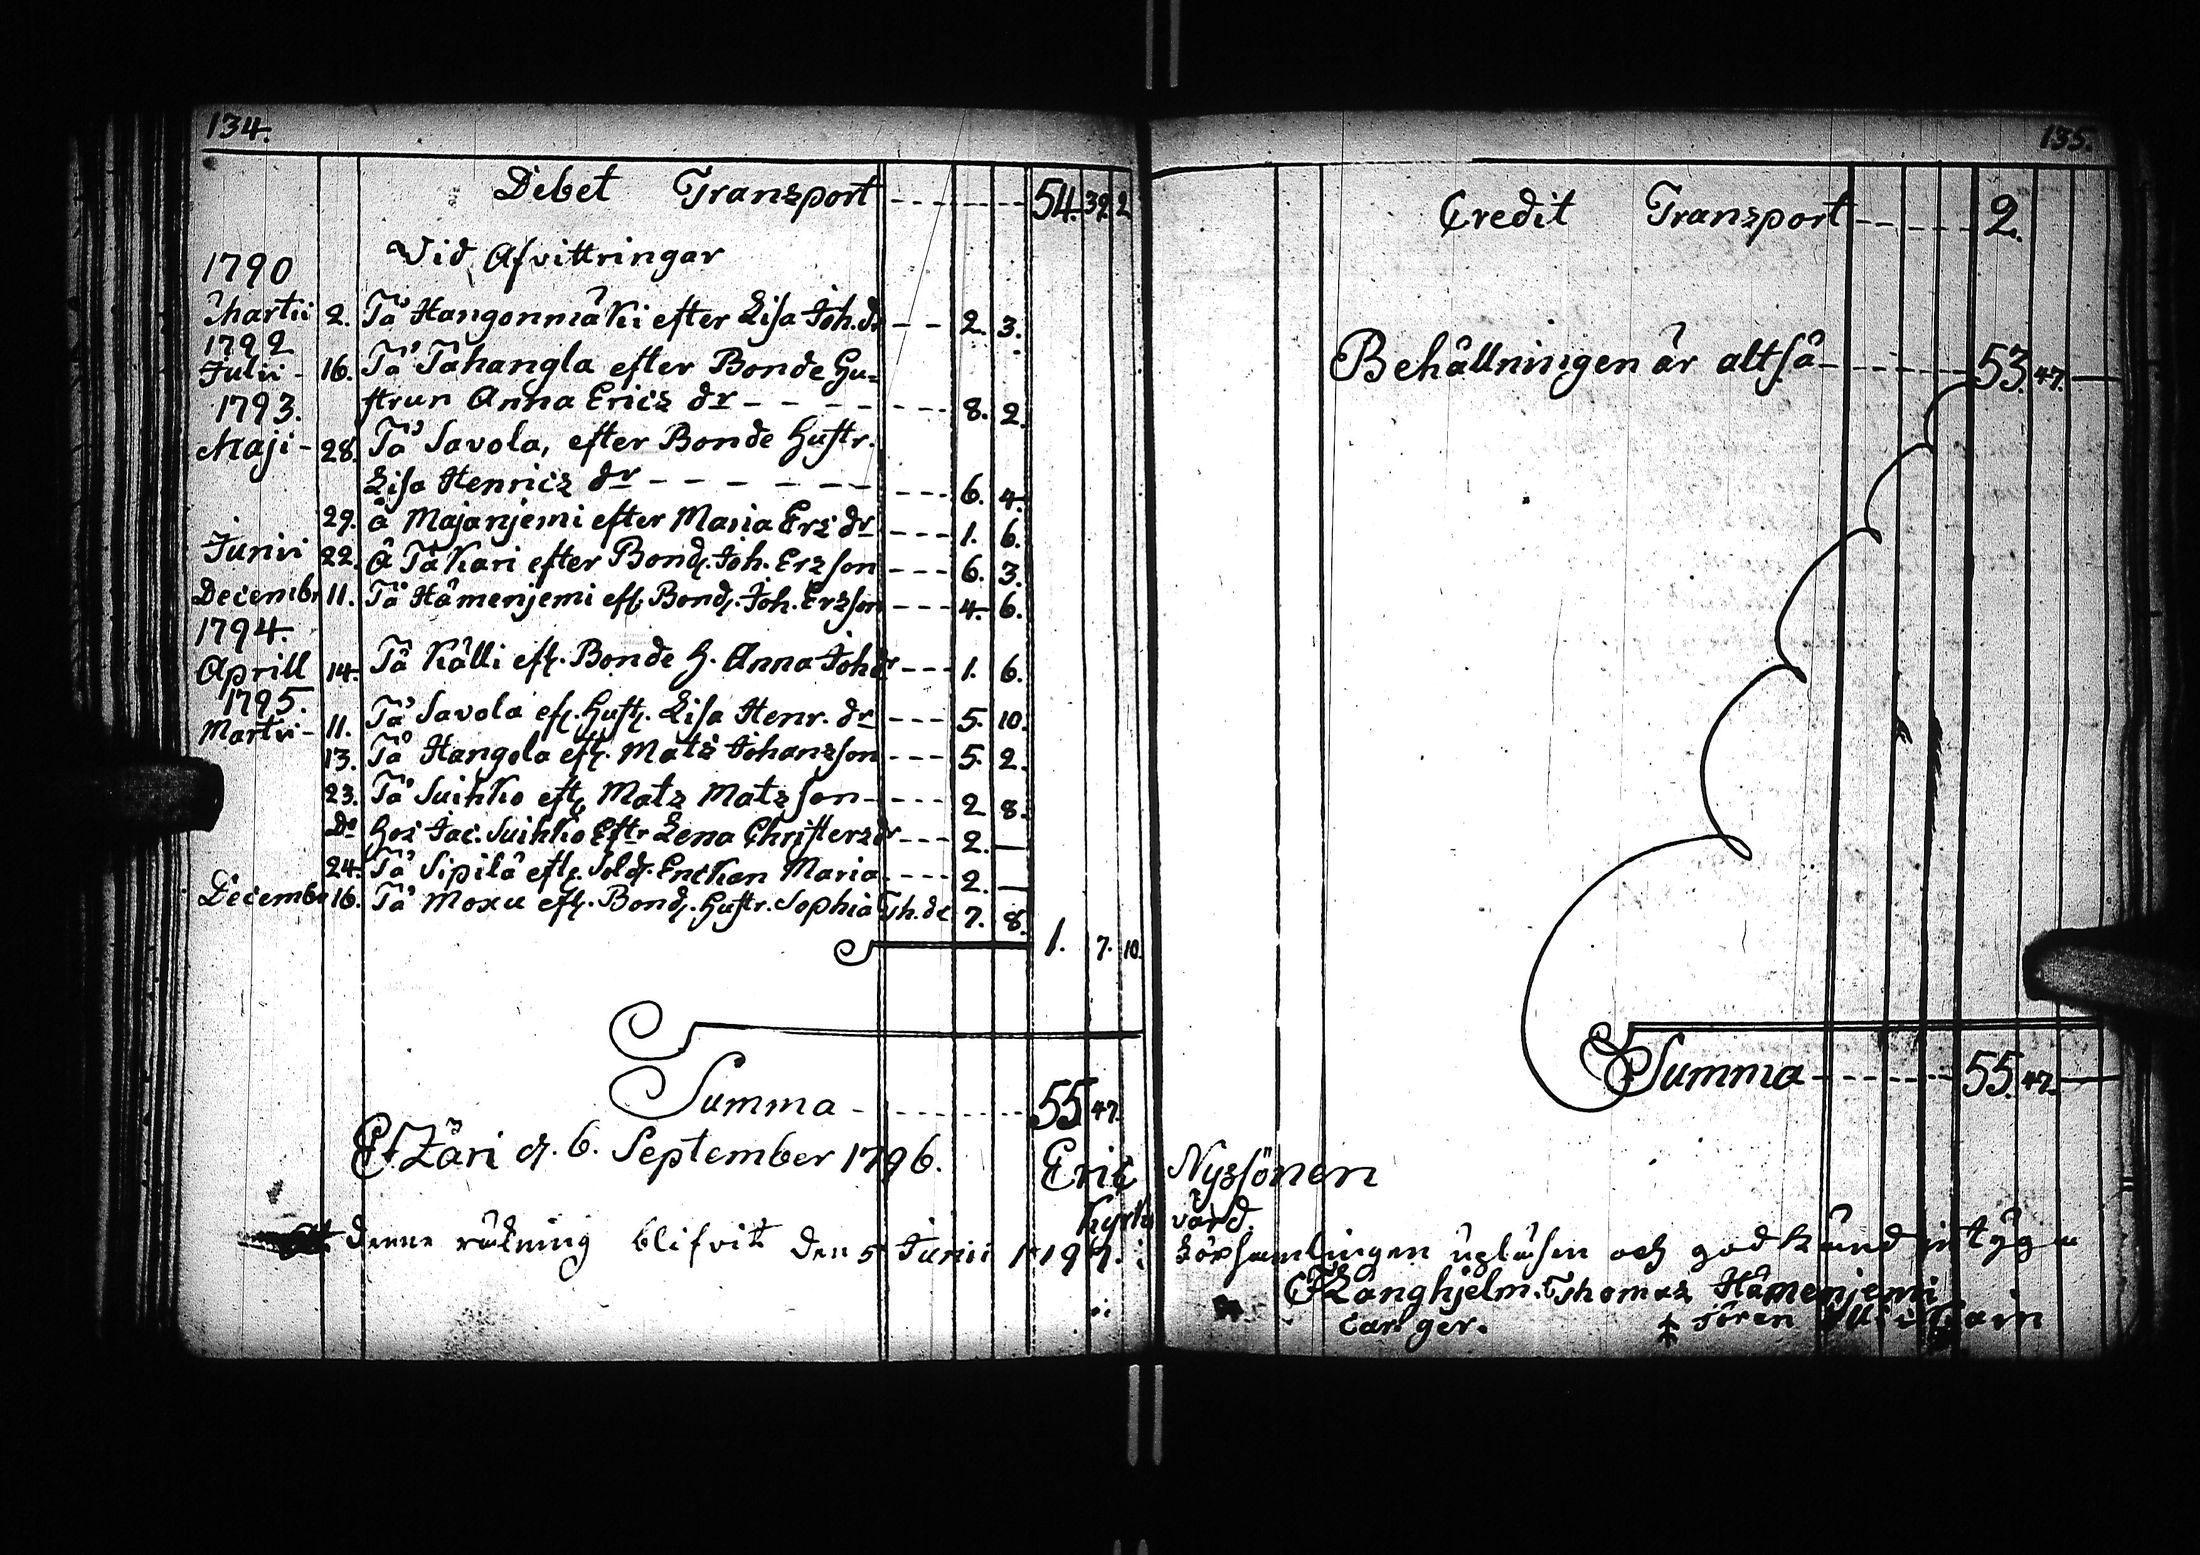 134.
Debet Transport - - - - - - 54. 39. 2
Vid Afvittringar
1790
Martii 2. Tå Hangonmäki efter Lisa Joh. dr - - 2. 3.
1792
Julii - 16. Tå Tåhangla efter Bonde Hu=
1793. strun Anna Erics dr - - - - - - - 8. 2.
Maji - 28. Tå Savola, efter Bonde Hustr.
Lisa Henrics dr - - - - - - - - - 6. 4.
29. å Majanjemi efter Maria Ers dr - - - 1. 6.
Junii 22. Å Tåkari efter Bond. Joh. Erzson - - - 6. 3.
Decembr 11. Tå Hämenjemi eft. Bond. Joh. Erszon - - - 4. 6.
1794.
Aprill 14. Tå Källi eft. Bonde H. Anna Joh dr - - - 1. 6.
1795.
Martii - 11. Tå Savola eft. Hust. Lisa Henr. dr - - - 5. 10.
13. Tå Hangola eft. Mats Johanszon - - - 5. 2.
23. Tå Suihko eft. Matz Matzson - - - - 2 8.
Do Hos Jac. Suihko Eftr Lena Christersdr - - - 2. —
24. Tå Sipilä eft. Sold. Enckan Maria - - - - 2. —
Decembr 16. Tå Moxu eft. Bond. Hustr. Sophia Th. dr 7. 8.
1. 7. 10.
Summa - - - - - - - 55 47.
Pt. Zäri d. 6. September 1796.
Eric Nyssönen
Kyrko värd.
denne räkning blifvit den 5 Junii 1797. i Församlingen upläsen och godkänd intygа
Långhjelm. Thomas Hämenjemi
135.
Credit Transport - - - - - 2.
Behållningen är altså - - - - - - 53. 47. —
Summa - - - - - - 55. 47. —